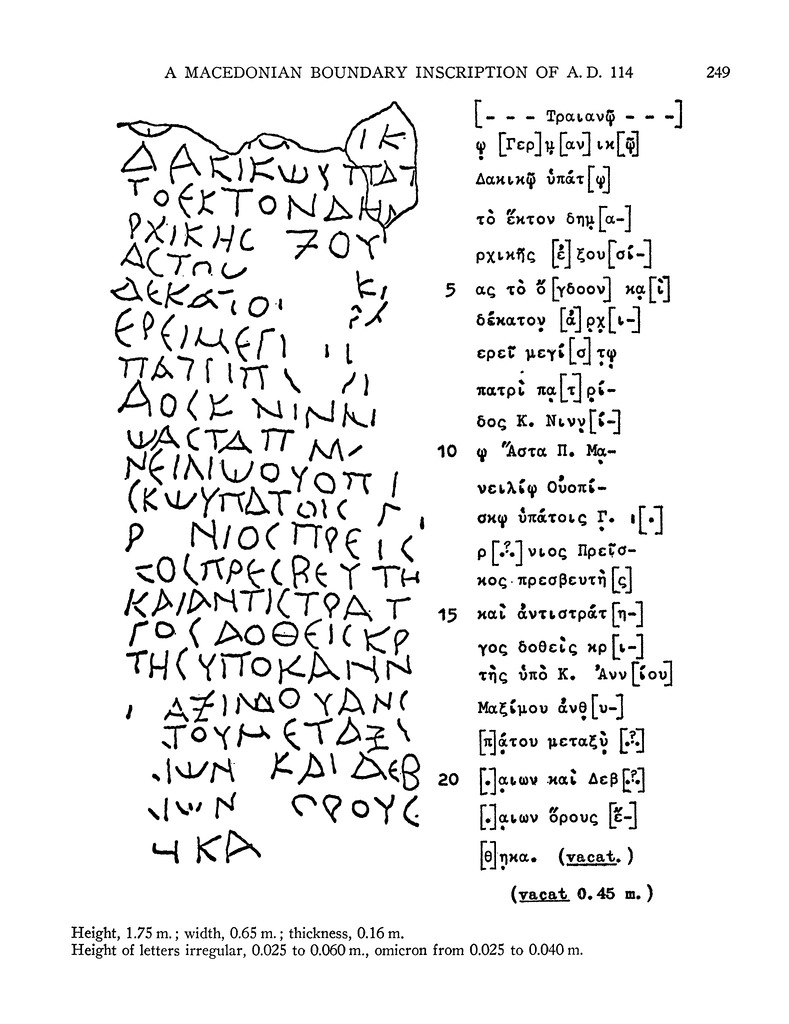 A MACEDONIAN BOUNDARY INSCRIPTION OF A.D. 114 249
[- - - Τραιανῷ - - -]
ῳ [Γερ]μ̣[αν]ικ[ῷ]
Δακικῷ ὑπάτ[ῳ]
τὸ ἕκτον δημ̣[α-]
ρχικῆς [ἐ]ξου[σί-]
5 ας τὸ ὄ[γδοον] κα̣[ὶ]
δέκατον̣ [ἀ]ρ̣χ̣[ι-]
ερεῖ μεγί[σ]τ̣ῳ
πατρὶ πα̣[τ]ρ̣ί-
δος Κ. Νινν̣[ί-]
10 ῳ Ἄστα Π. Μα̣-
νειλίῳ Οὐοπί-
σκῳ ὑπάτοις Γ. ι[.]
ρ[.?.]νιος Πρεῖσ-
κος πρεσβευτὴ[ς]
15 καὶ ἀντιστράτ[η-]
γος δοθεὶς κρ[ι-]
τὴς ὑπὸ Κ. Ἀνν[ίου]
Μαξίμου ἀνθ̣[υ-]
[π]ά̣του μεταξὺ̣ [.?.]
20 [.]α̣ιων καὶ Δεβ[.?.]
[.]α̣ιων ὅρους [ἔ-]
[θ]η̣κα. (vacat.)
(vacat 0.45 m.)
ΙΚ
ΔΑΚΙΚΩΥΠΑΤ
ΤΟΕΚΤΟΝΔΗΜ
ΡΧΙΚΗϹ ΖΟΥ
ΔΕΚΑΤΟΙ
ΕΡΕΙΜΕΓΙ
ΩΑϹΤΑ Π Μ
ΚΑΙΑΝΤΙϹΤΡΑ Τ
ΓΟϹΔΟΘΕΙϹΚΡ
ΤΗϹΥΠΟΚΑΝΝ
ΤΟΥΜΕΤΑΞ
ΙΩΝ ΚΑΙ ΔΕΒ
ΚΑ
Height, 1.75 m.; width, 0.65 m.; thickness, 0.16 m.
Height of letters irregular, 0.025 to 0.060 m., omicron from 0.025 to 0.040 m.